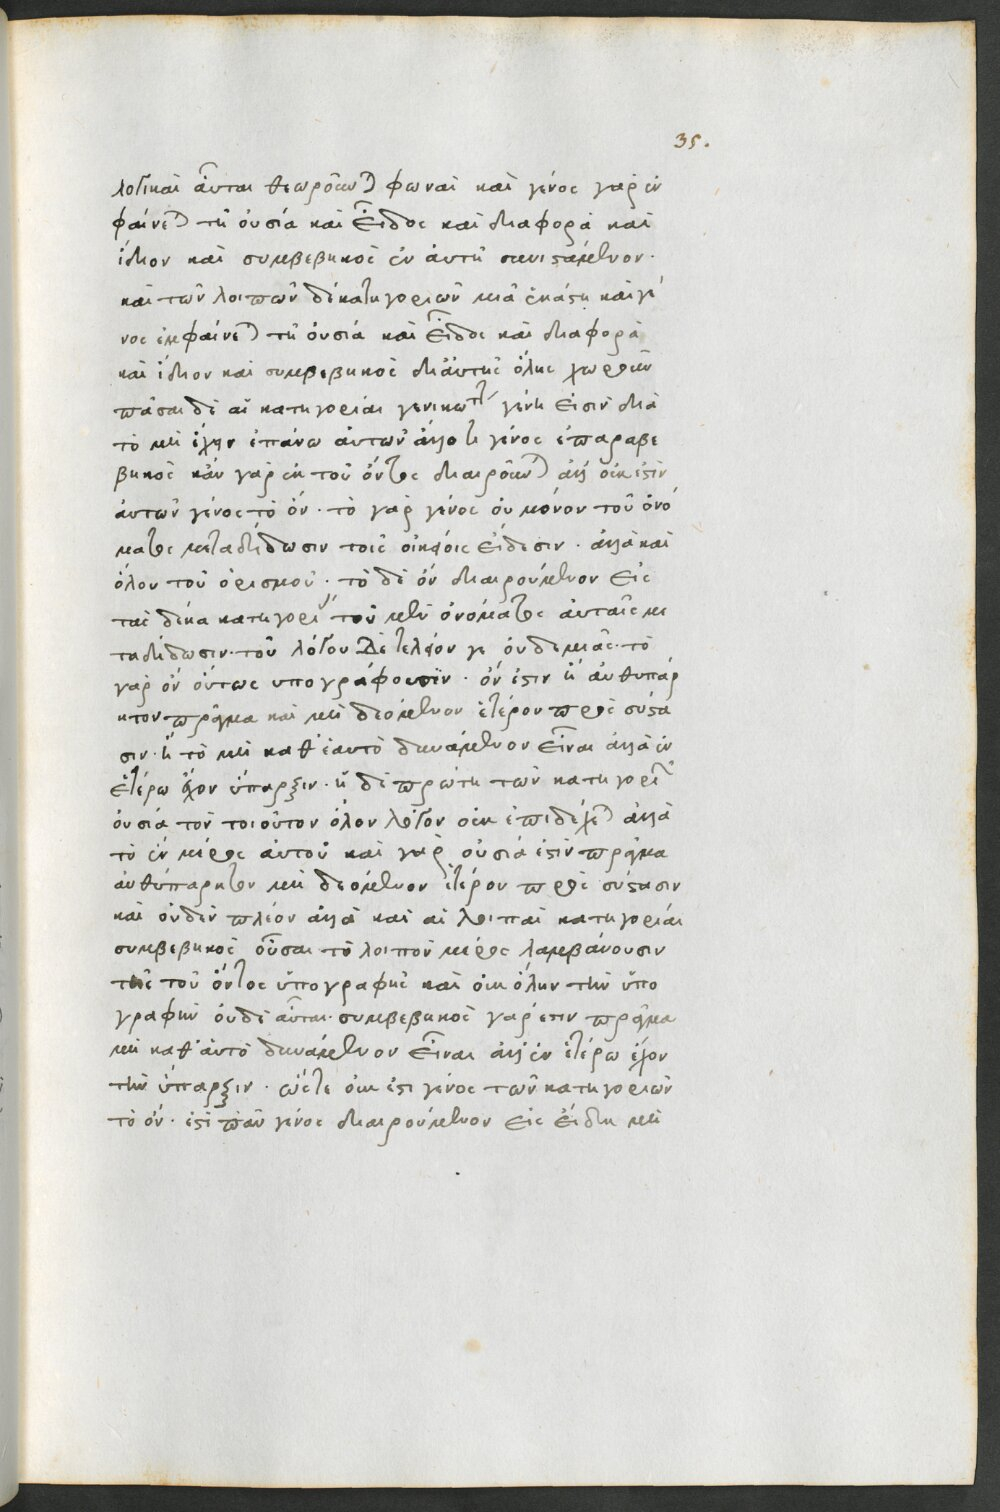 35.
λογικαὶ αὗται θεωροῦν) φωναὶ καὶ γένος γὰρ ἐν
φαίνε) τῆ οὐσία καὶ εἶδος καὶ διαφορὰ καὶ
ἴδιον καὶ συμβεβηκὸς ἐν αὐτῆ συνιστάμενον.
καὶ τῶν λοιπῶν δὲ κατηγοριῶν μιᾶ ἑκάστη καὶ γέ
νος ἐμφαίνε) τῆ οὐσιά καὶ εἶδος καὶ διαφορὰ
καὶ ἴδιον καὶ συμβεβηκὸς δι αὐτῆς ὅλης χωροῦν
πᾶσαι δὲ αἱ κατηγορίαι γενικωτ γένη εἰσὶν διὰ
τὸ μὴ ἔχειν ἐπάνω αὐτῶν ἄλλο τι γένος ἐπαναβε
βηκὸς κἂν γὰρ ἐκ τοῦ ὄντος διαιροῦν) ἀλλ οὐκ ἔστιν
αὐτῶν γένος τὸ ὄν. τὸ γὰρ γένος οὐ μόνον τοῦ ὀνό
ματος μεταδίδωσιν τοῖς οἰκείοις εἴδεσιν. ἀλλὰ καὶ
ὅλου τοῦ ὁρισμοῦ. τὸ δὲ ὂν διαιρούμενον εἰς
τὰς δέκα κατηγορί τοῦ μὲν ὀνόματος αὐταῖς με
ταδίδωσιν. τοῦ λόγου δὲ τελείου γε οὐδεμιᾶς. τὸ
γὰρ ὂν οὕτως υπογράφουσιν. ὄν ἐστιν ἢ αὐθύπαρ
κτον πρᾶγμα καὶ μὴ δεόμενον ἑτέρου πρὸς σύστα
σιν. ἢ τὸ μὴ καθ ἑαυτὸ δυνάμενον εἶναι ἀλλὰ ἐν
ἑτέρω ἔχον ὕπαρξιν. ἡ δὲ πρώτη τῶν κατηγορι
οὐσιά τὸν τοιοῦτον ὅλον λόγον οὐκ ἐπιδέχε) ἀλλὰ
τὸ ἓν μέρος αὐτοῦ καὶ γὰρ οὐσιά ἐστὶν πρᾶγμα
αὐθύπαρκτον μὴ δεόμενον ἑτέρου πρὸς σύστασιν
καὶ οὐδὲν πλέον ἀλλὰ καὶ αἱ λοιπαὶ κατηγορίαι
συμβεβηκὸς οὖσαι τὸ λοιπὸν μέρος λαμβάνουσιν
τῆς τοῦ ὄντος ὑπογραφῆς καὶ οὐκ ὅλην τὴν ὑπο
γραφὴν οὐδὲ αὗται. συμβεβηκὸς γάρ ἐστιν πρᾶγμα
μὴ καθ αὑτὸ δυνάμενον εἶναι ἀλλ ἐν ἑτέρω ἔχον
τὴν ὕπαρξιν. ὥστε οὐκ ἔστι γένος τῶν κατηγοριῶν
τὸ ὄν. ἔτι πᾶν γένος διαιρούμενον εἰς εἴδη μὴ